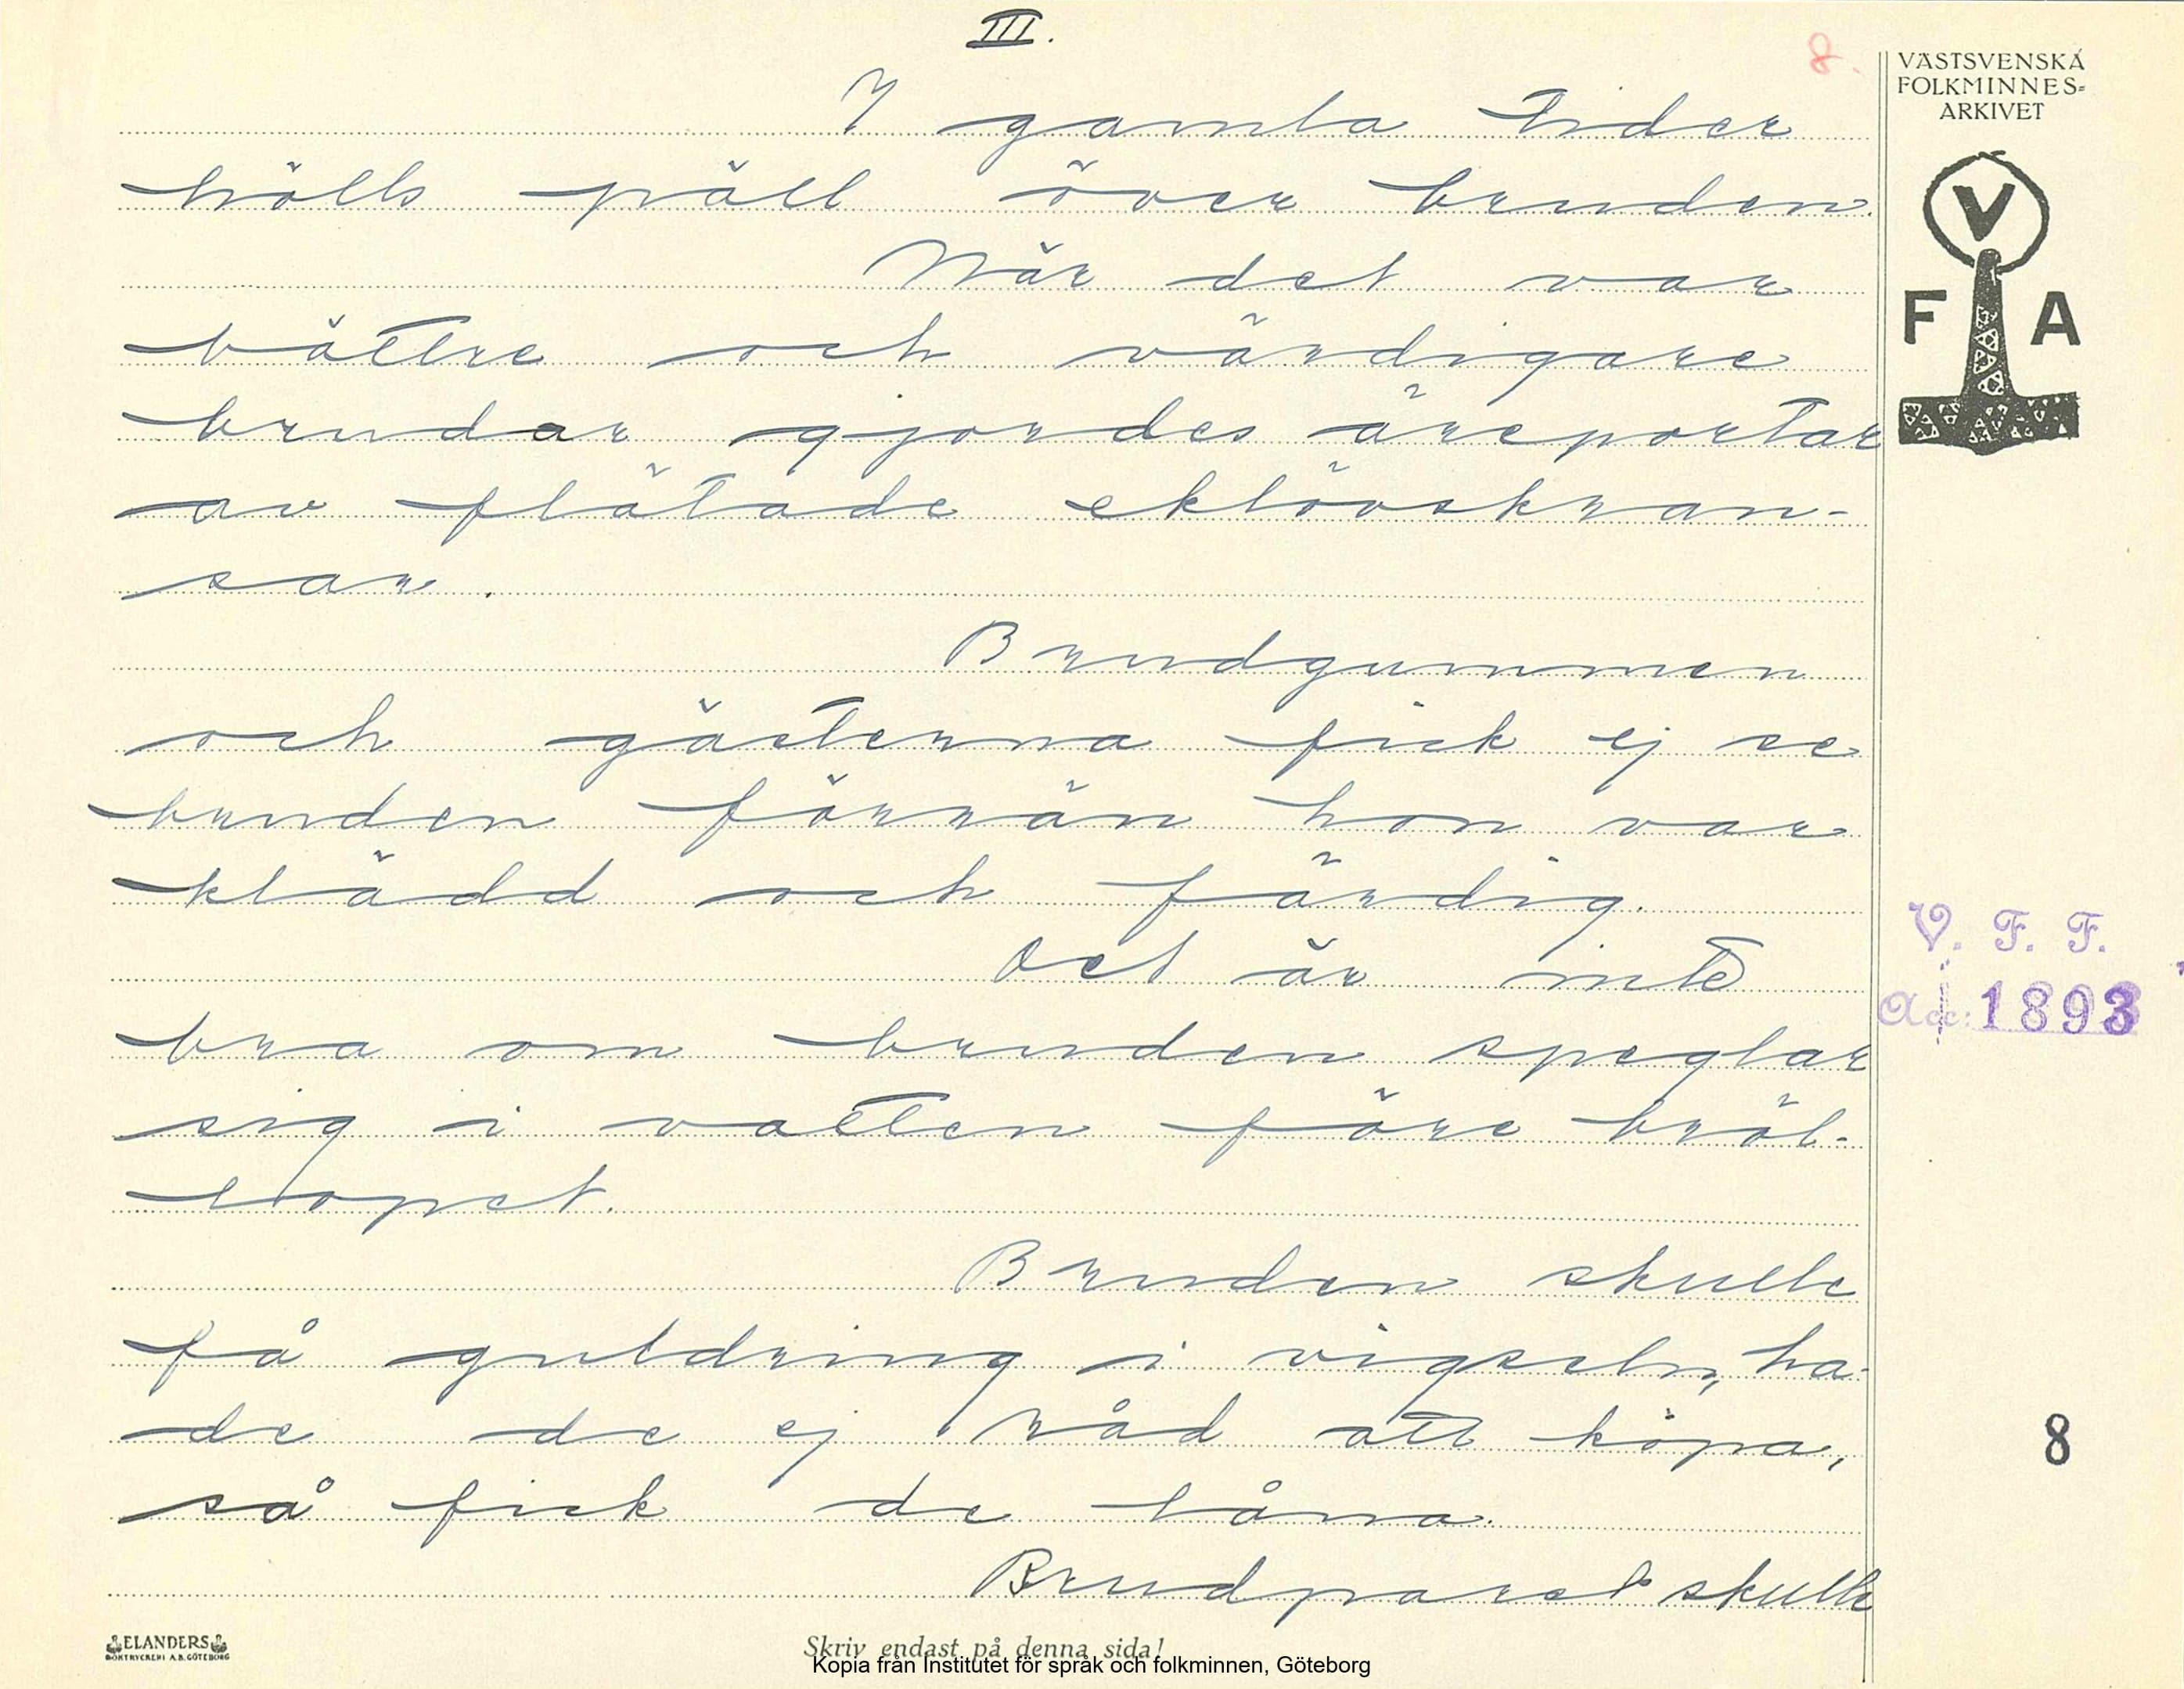 III.
8.
VÄSTSVENSKA
FOLKMINNES=
ARKIVET
I gamla tider
hölls päll över bruden.
V
När det var
F A
bättre och värdigare
brudar gjordes äreportar
av flätade eklövskran-
sar.
Brudgummen
och gästerna fick ej se
bruden förrän hon var
klädd och färdig.
V. F. F.
Det är inte
Acc: 1893
bra om bruden speglar
sig i vatten före bröl-
lopet.
Bruden skulle
få guldring i vigseln, ha-
de de ej råd att köpa,
8
så fick de låna.
Brudparet skulle
ELANDERS
BOKTRYCKERI A.B. GÖTEBORG
Skriv endast på denna sida!
Kopia från Institutet för språk och folkminnen, Göteborg